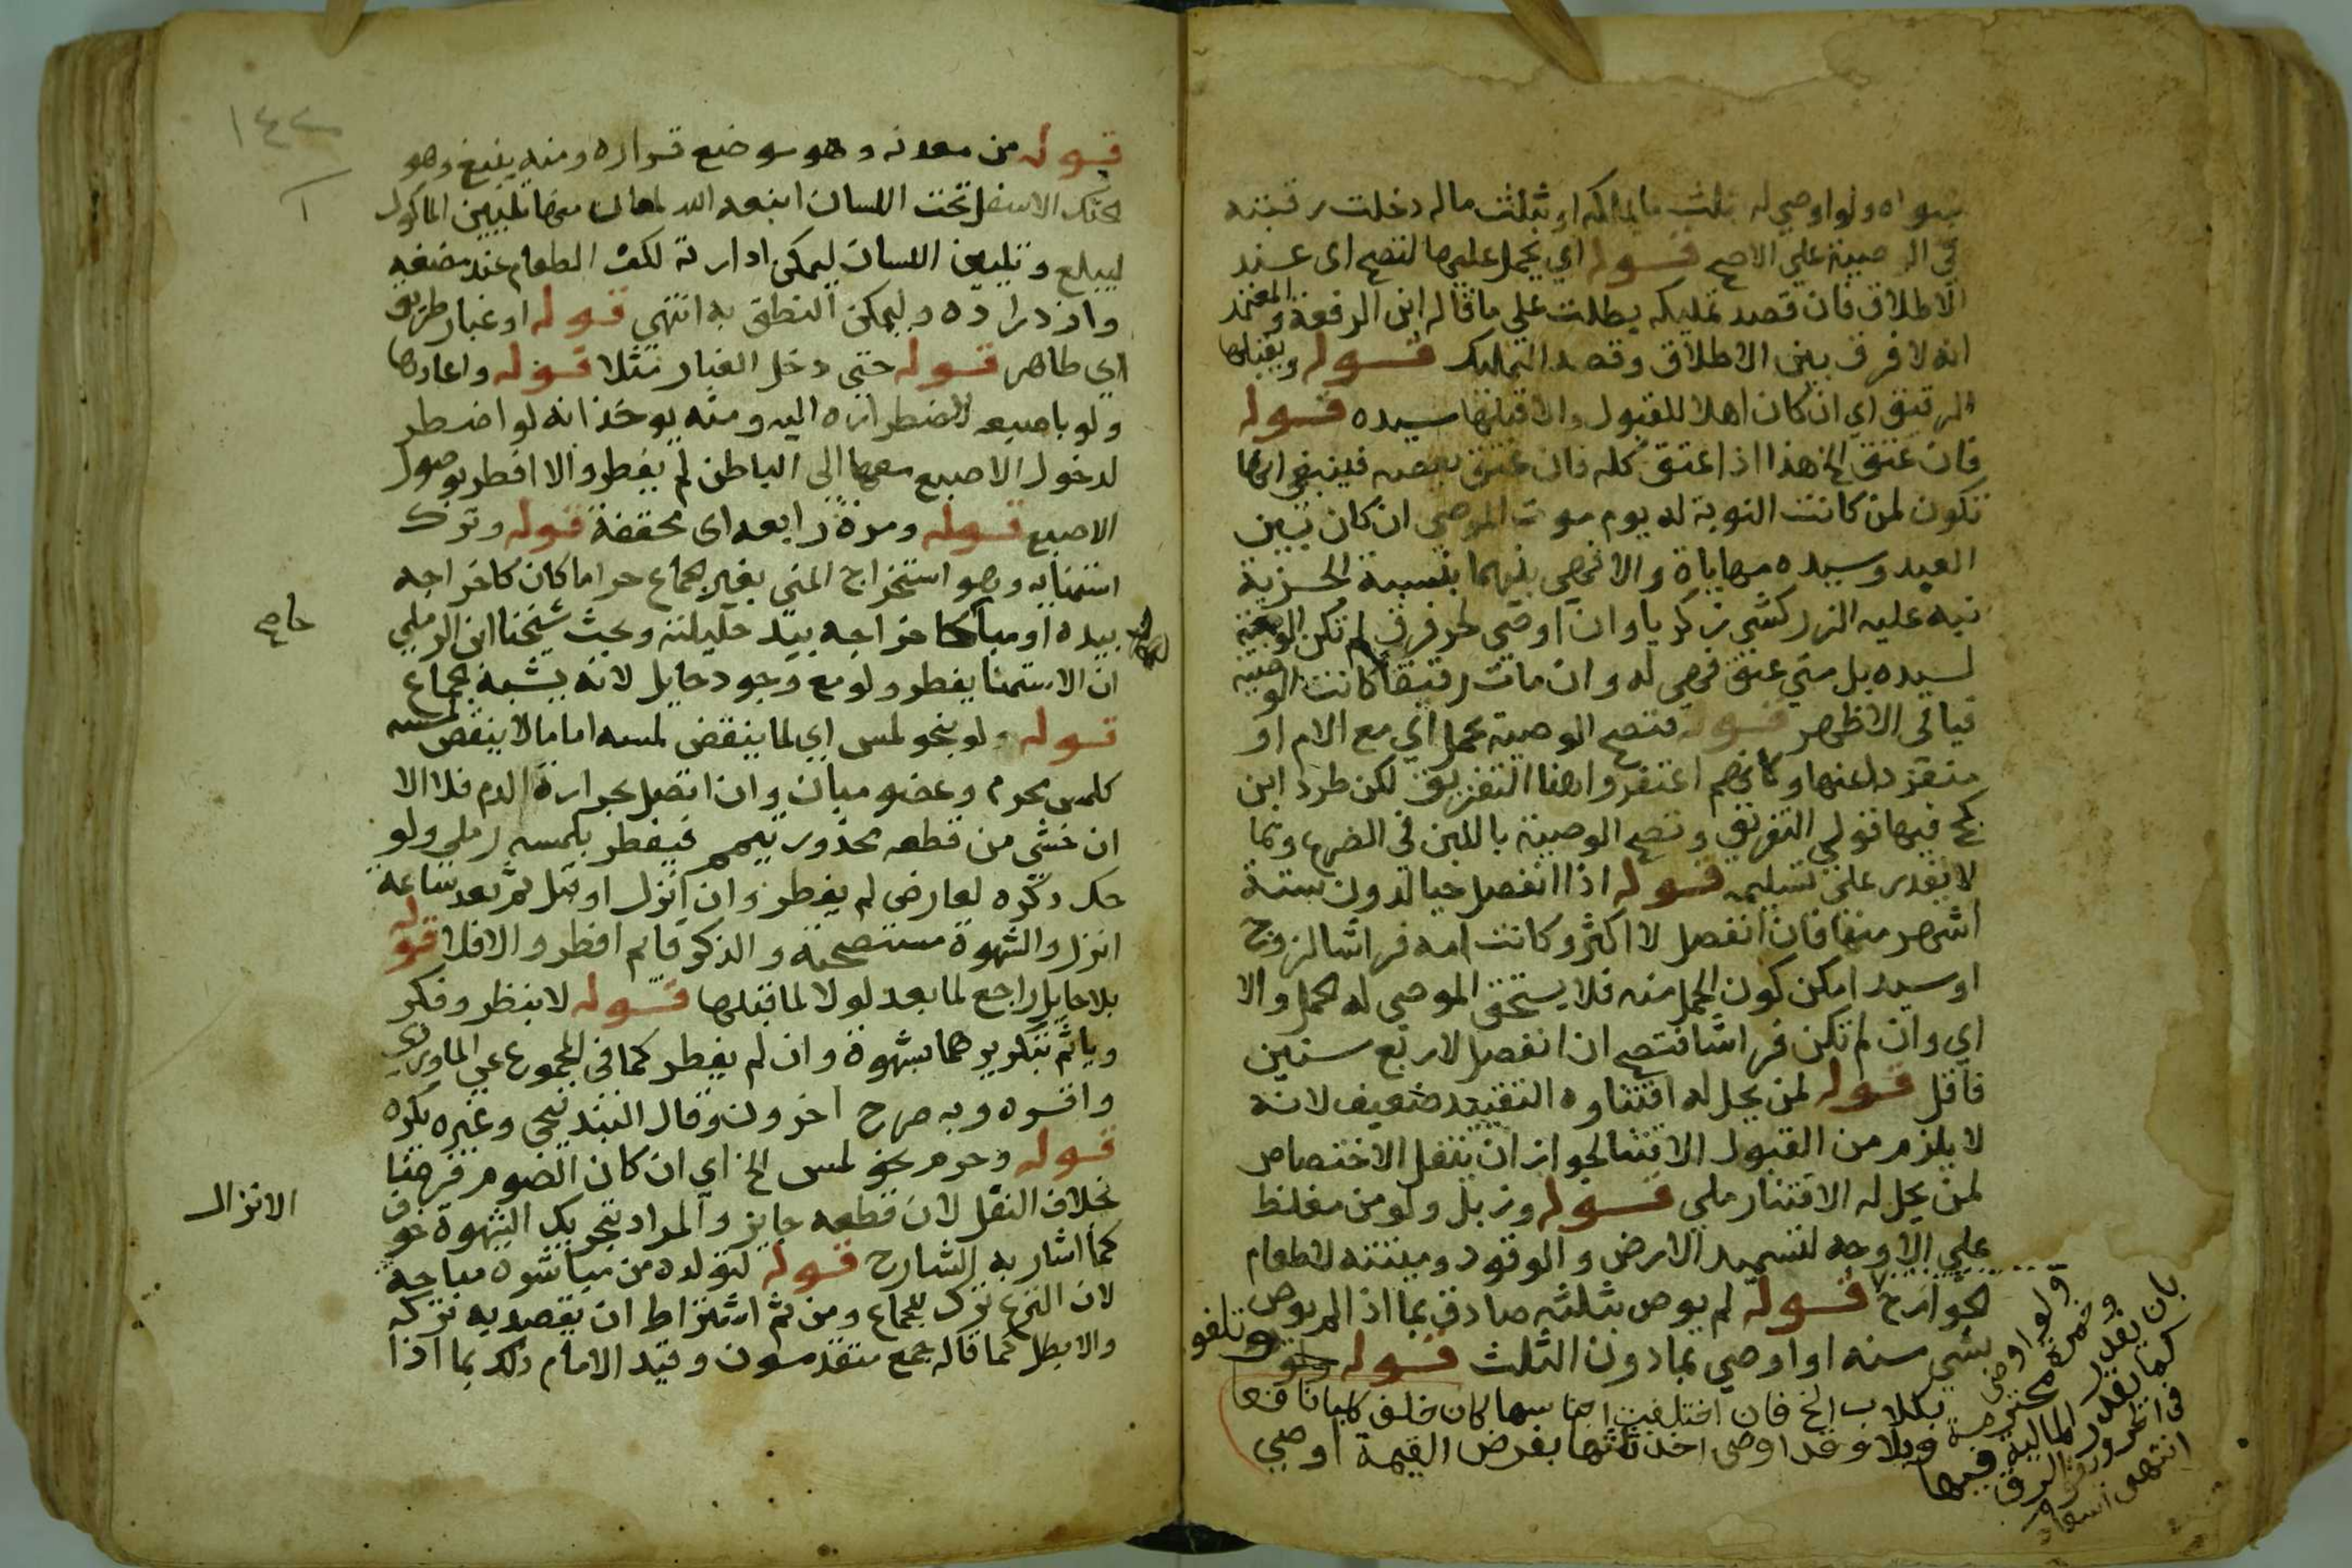 سواه ولو اوصي له بثلث ما يملكه او بثلث ماله دخلت رقبته
في الوصية علي الاصح قوله اي يحمل عليها لتصح اى عند
الاطلاق فان قصد تمليكه بطلت علي ما قاله ابن الرفعة والمعتمد
انه لا فرق بين الاطلاق وقصد التمليك قوله ويقبلها
الرقيق اي ان كان اهلا للقبول والا قبلها سيده قوله
فان عتق الخ هذا اذا عتق كله فان عتق بعضه فينبغي انها
تكون لمن كانت النوبة له يوم موت الموصي ان كان بين
العبد وسيده مهاياة والا فهي بينهما بنسبة الحرية
نبه عليه الزركشي زكريا وان اوصي لحر فرق لم تكن الوصية
لسيده بل متي عتق فهي له وان مات رقيقا كانت الوصية
فيأ في الاظهر قوله فتصح الوصية بحمل اي مع الام او
منفردا عنها وكانهم اغتفروا هنا التفريق لكن طرد ابن
كج فيها قولي التفريق وتصح الوصية باللبن في الضرع وبما
لا يقدر علي تسليمه قوله اذا انفصل حيا لدون ستة
اشهر منها فان انفصل لاكثر وكانت امه فراشا لزوج
او سيد امكن كون الحمل منه فلا يستحق الموصي له الحمل والا
اي وان لم تكن فراشا فتصح ان انفصل لاربع سنين
فاقل قوله لمن يحل له اقتناوه التقييد ضعيف لانه
لا يلزم من القبول الاقتنا لجواز ان ينقل الاختصاص
لمن يحل له الاقتنا رملي قوله وزبل ولو من مغلظ
علي الاوجه لتسميد الارض والوقود وميتته لاطعام
الجوارح قوله لم يوص بثلثه صادق بما اذا لم يوص
بشي منه او اوصي بما دون الثلث قوله وتلغو
ولو اوصي بكلاب الخ فان اختلفت اجناسها كان خلف كلبا نافعا
وخمرة محترمة وبلا وقد اوصي اخذ ثلثها بفرض القيمة اوصي
بان يقدر المالية فيها
كما يقدر الرق
في الحر
انتهى
١٤٢
قوله من معدنه وهو موضع قراره ومنه ينبع وهو
الحنك الاسفل تحت اللسان انبعه الله لمعان منها تليين الماكول
ليبلع وتليين اللسان ليمكن ادارته لكف الطعام عند مضغه
وازدراده وليمكن النطق به انتهي قوله او غبار طريق
اي طاهر قوله حتي دخل الغبار مثلا قوله واعادها
ولو باصبعه لاضطراره اليه ومنه يوخذ انه لو اضطر
لدخول الاصبع معها الى الباطن لم يفطر والا افطر بوصول
الاصبع قوله ومرة رابعه اى محققة قوله وترك
استمنابه وهو استخراج المني بغير جماع حراما كان كاخراجه
بيده او مباحا كاخراجه بيد حليلته وبحث شيخنا ابن الرملي
ان الاستمنا يفطر ولو مع وجود حايل لانه يشبه الجماع
قوله ولو بنحو لمس اي لما ينقض لمسه اما ما لا ينقض لمسه
كلمس محرم وعضو مبان وان اتصل بحرارة الدم فلا الا
ان خشي من قطعه محذور تيمم فيفطر بلمسه رملي ولو
حك ذكره لعارض لم يفطر وان انزل او قبل ثم بعد ساعة
انزل والشهوة مستصحبة والذكر قايم افطر والا فلا قوله
بلا حايل راجع لما بعد لو لا لما قبلها قوله لا بنظر وفكر
وياثم بتكريرهما بشهوة وان لم يفطر كما في المجموع عن الماوردي
واقروه وبه صرح اخرون وقال البندنيجي وغيره يكره
قوله وحرم نحو لمس الخ اي ان كان الصوم فرضا
بخلاف النفل لان قطعه جايز والمراد بتحريك الشهوة خوف
كما اشار به الشارح قوله لتولده من مباشرة مباحة
لان النزع ترك للجماع ومن ثم اشتراط ان يقصد به تركه
والا بطل كما قاله جمع متقدمون وقيد الامام ذلك بما اذا
الانزال